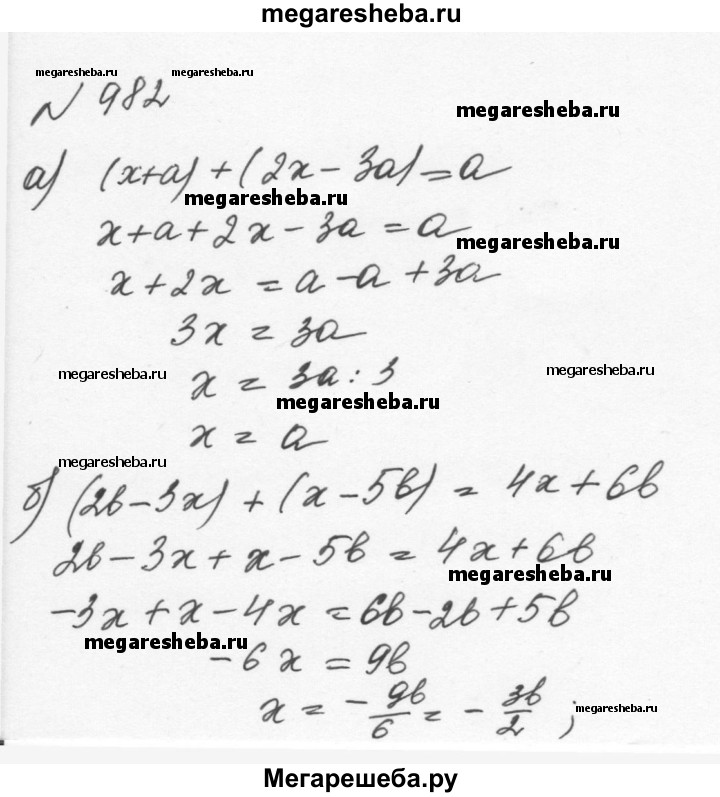 megaresheba.ru
megaresheba.ru megaresheba.ru
№ 982
megaresheba.ru
а) (x+a)+(2x-3a)=a
megaresheba.ru
x+a+2x-3a=a
megaresheba.ru
x+2x=a-a+3a
3x=3a
megaresheba.ru megaresheba.ru
x=3a:3
megaresheba.ru
x=a
megaresheba.ru
б) (2b-3x)+(x-5b)=4x+6b
2b-3x+x-5b=4x+6b
megaresheba.ru
-3x+x-4x=6b-2b+5b
megaresheba.ru
-6x=9b
x=-9b/6=-3b/2;
megaresheba.ru
Мегарешеба.ру